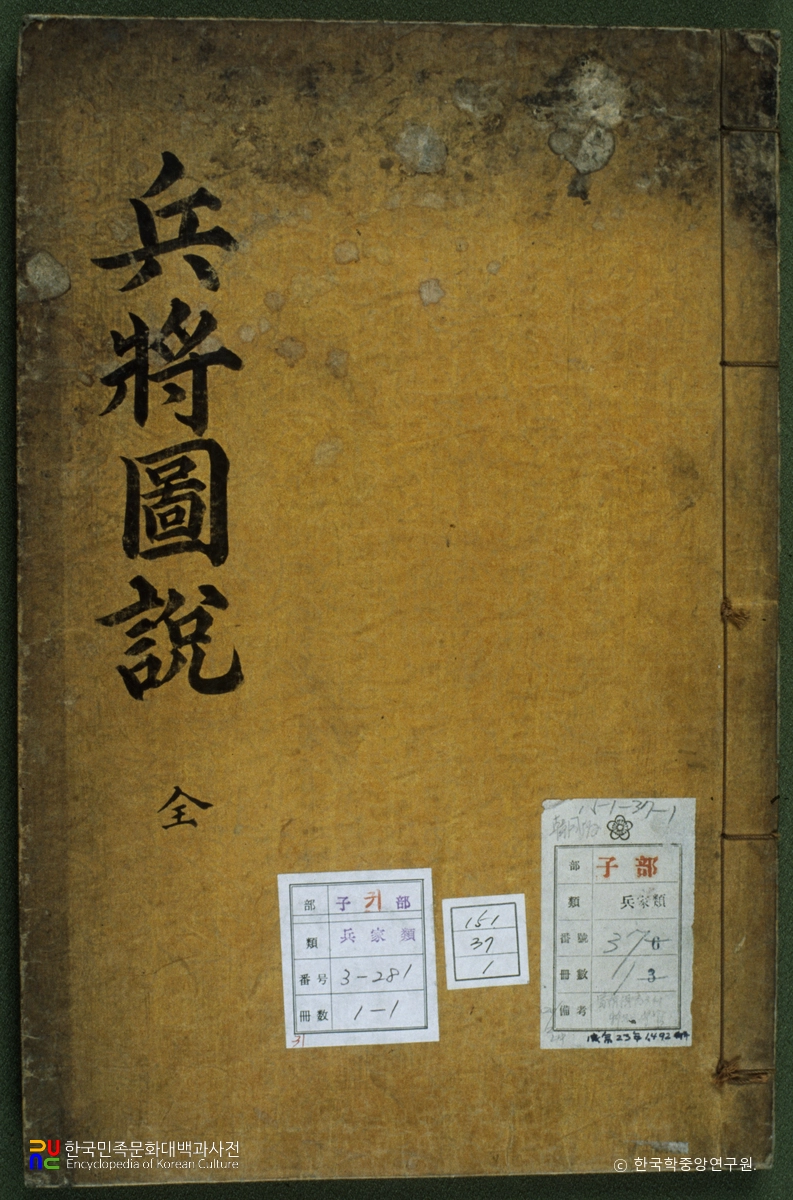 兵將圖說
全
部 子 귀 部
類 兵家類
番号 3-281
冊數 1-1
151
37
1
15-1-37-1
部 子部
類 兵家類
番號 37 6
冊數 1/ 3
備考
成宗23年1492
한국민족문화대백과사전
Encyclopedia of Korean Culture
ⓒ 한국학중앙연구원.